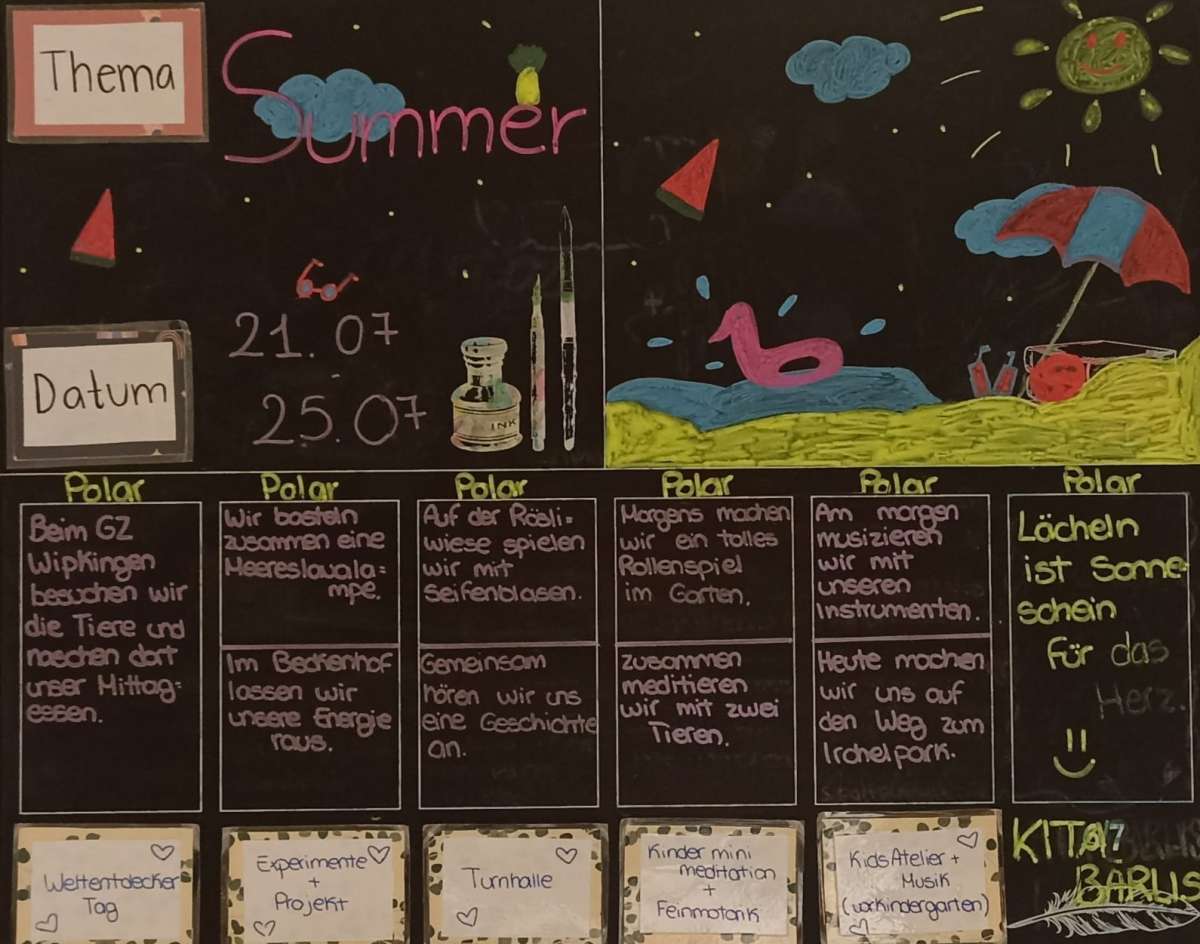 Thema
Summer
Datum
21.07
25.07
INK
Polar
Beim GZ
Wipkingen
besuchen wir
die Tiere und
naschen dort
unser Mittag=
essen.
Weltentdecker
Tag
Polar
Wir basteln
zusammen eine
Meereslavala=
mpe.
Im Beckenhof
lassen wir
unsere Energie
raus.
Experimente
+
Projekt
Polar
Auf der Rösli=
wiese spielen
wir mit
Seifenblasen.
Gemeinsam
hören wir uns
eine Geschichte
an.
Turnhalle
Polar
Morgens machen
wir ein tolles
Rollenspiel
im Garten.
Zusammen
meditieren
wir mit zwei
Tieren.
Kinder mini
meditation
+
Feinmotorik
Polar
Am morgen
musizieren
wir mit
unseren
Instrumenten.
Heute machen
wir uns auf
den Weg zum
Irchelpark.
Kids Atelier +
Musik
(vorkindergarten)
Polar
Lächeln
ist Sonne
schein
für das
Herz.
KITA
BARLIS